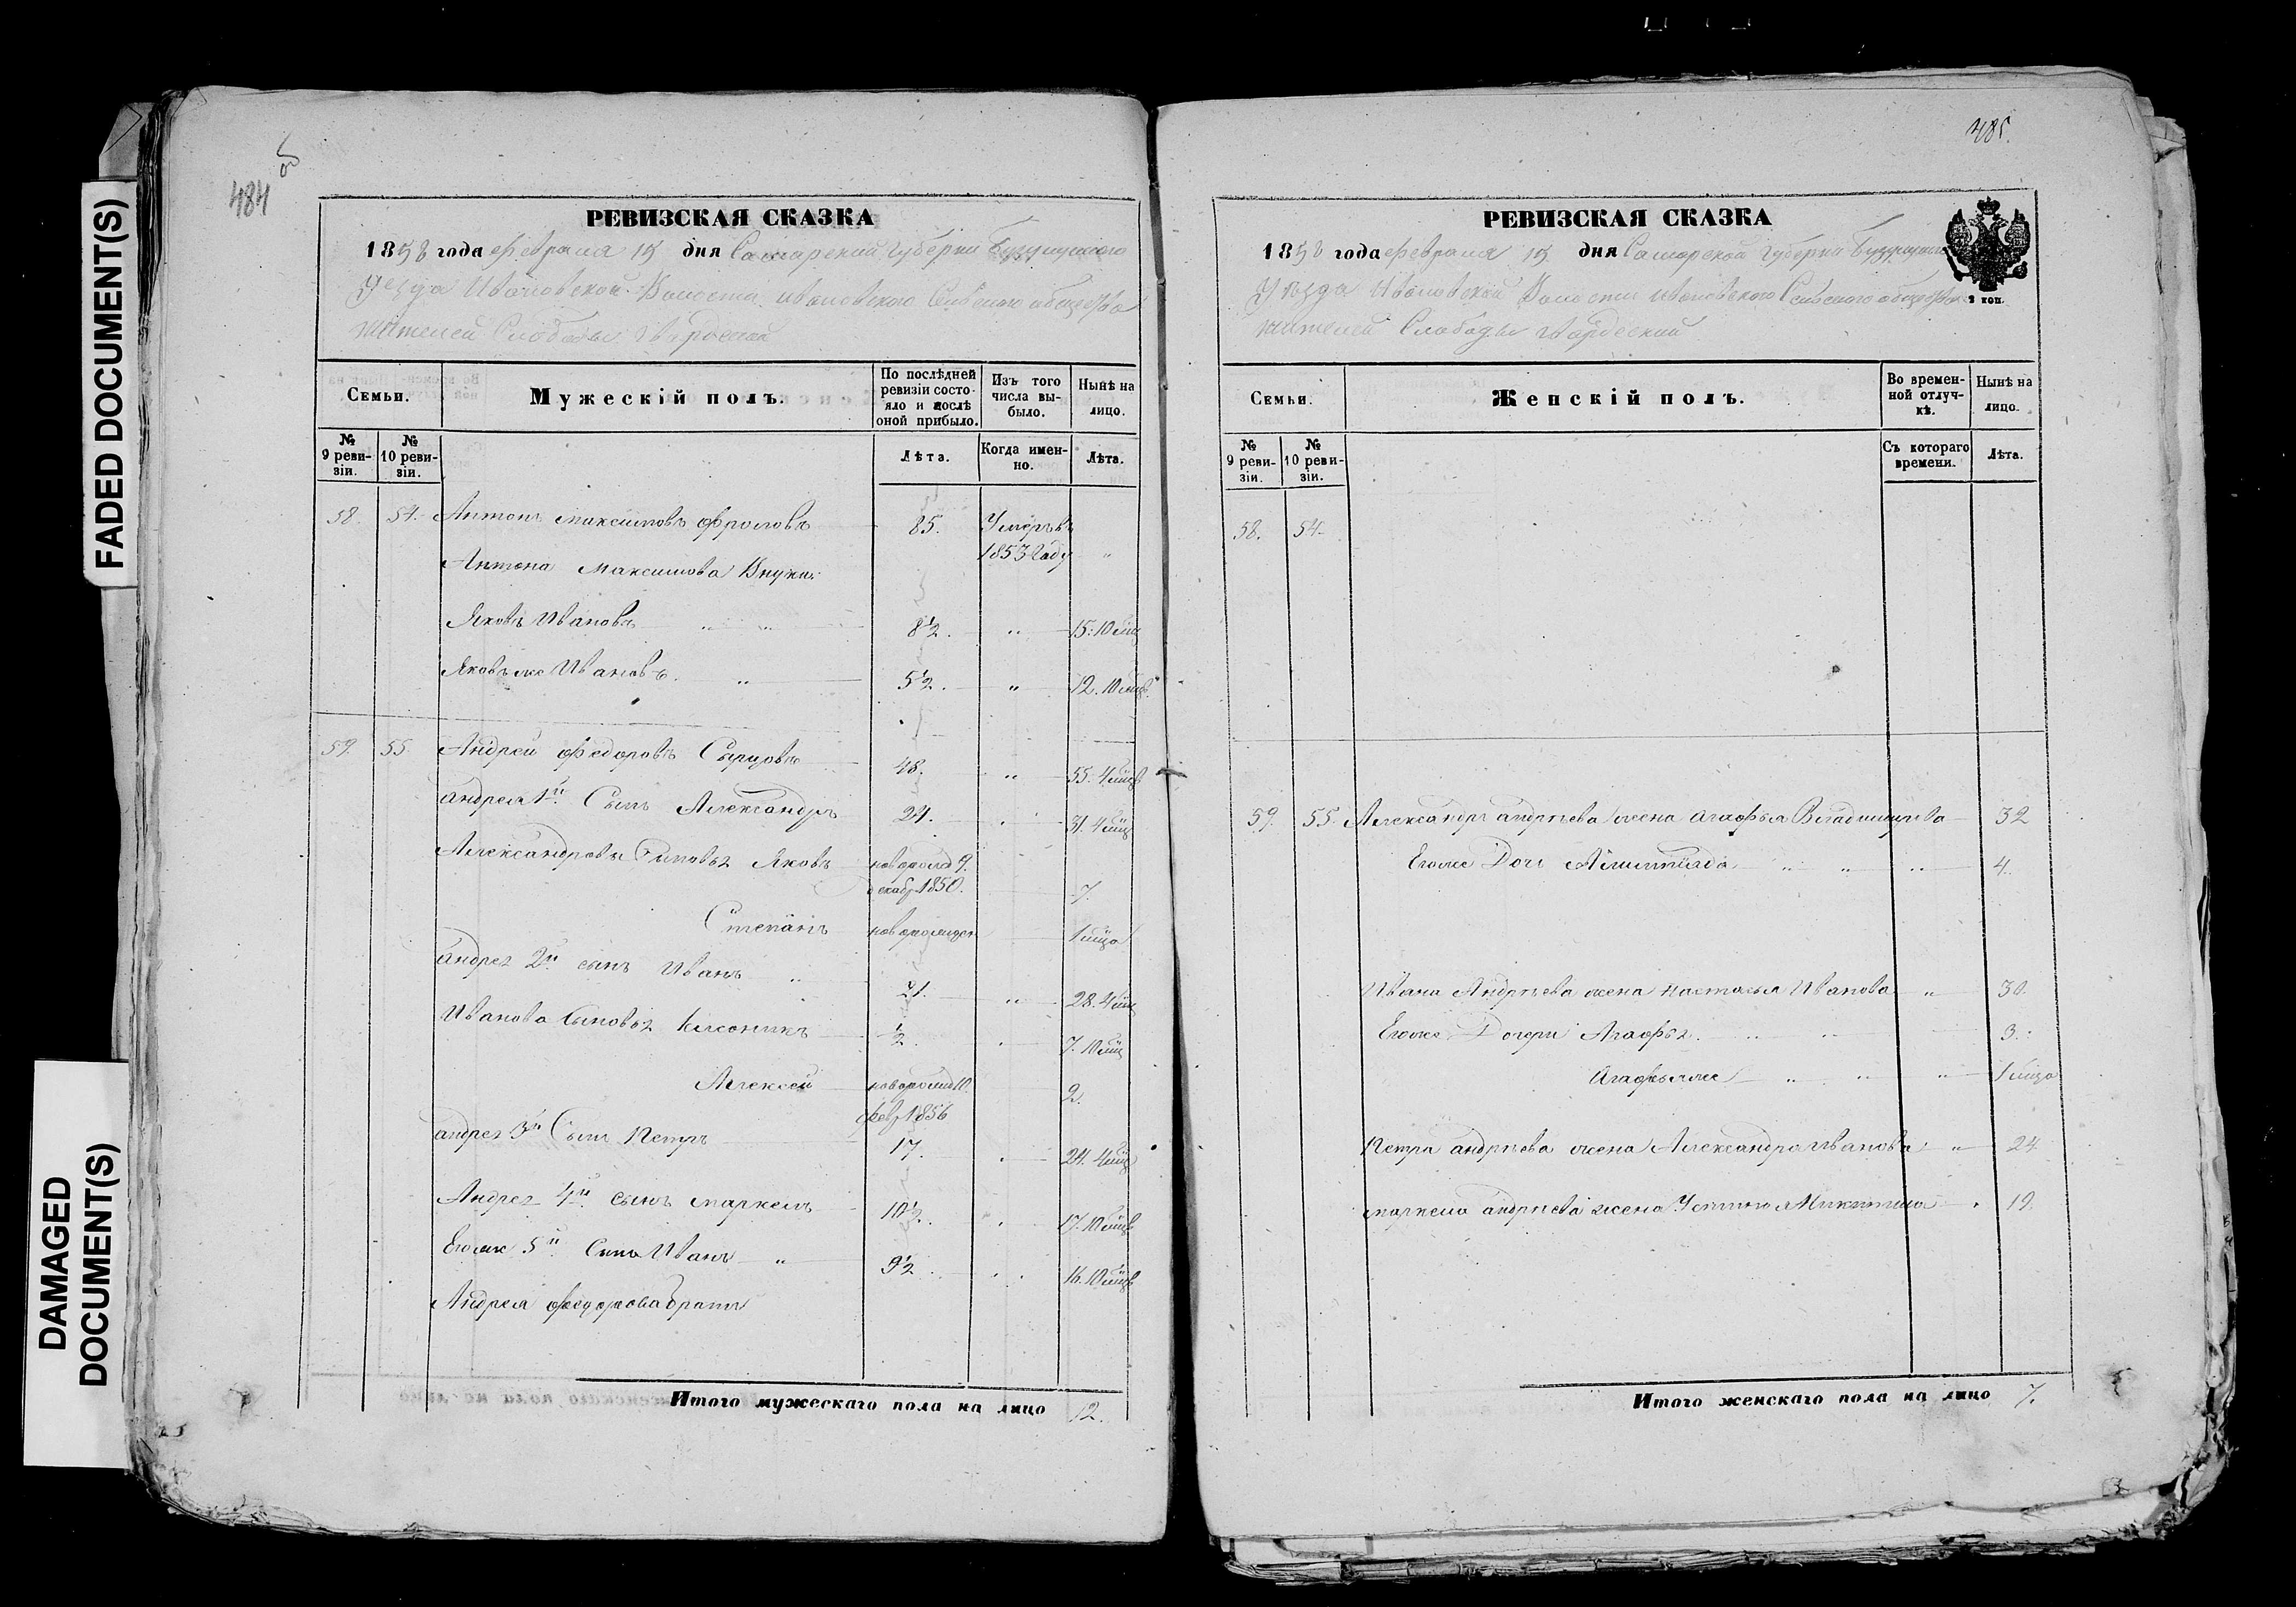 FADED DOCUMENT(S)
DAMAGED
DOCUMENT(S)
484
об
РЕВИЗСКАЯ СКАЗКА
1858 года Февраля 15 дня Самарской Губерни Бузулукского
Уезда Ивановской Волости Ивановского Сельского общества
жителей Слободы Гвардеской
Семьи.
Мужескій полъ.
По послѣдней
ревизіи состо-
яло и послѣ
оной прибыло.
Изъ того
числа вы-
было.
Нынѣ на
лицо.
№
9 реви-
зіи.
№
10 реви-
зіи.
Лѣта.
Когда имен-
но.
Лѣта.
58. 54. Антонъ Максимовъ Фроловъ 85. Умеръ въ
1853 Году "
Антона Максимова Внуки:
Яковъ Ивановъ " " 8½. " 15. 10 мц
Яковъ же Ивановъ. " 5½. " 12. 10 мцв
59. 55. Андрей Федоровъ Сырцовъ 48. " 55. 4 мцв
Андрея 1й. Сынъ Александръ 24. 31. 4 мц
Александровы Сыновья Яковъ новорожд 9.
декаб. 1850. 7.
Степанъ новорожден 1 мца
Андрея 2й. сынъ Иванъ " 21. " 28. 4 мц
Иванова Сыновья ½. 7. 10 мц
Алексей новорожд 10.
фев. 1856 2.
Андрея 3й Сынъ Петръ 17. 24. 4 мц
Андрея 4й. сынъ Маркелъ 10½. 17. 10 мцв
Егоже 5й. Сынъ Иванъ " 9½. 16. 10 мцв
Андрея Федорова братъ
Итого мужескаго пола на лицо 12.
485.
РЕВИЗСКАЯ СКАЗКА
1858 года Февраля 15 дня Самарской Губерни Бузулукского
Уѣзда Ивановской Волости Ивановского Сельского общества
жителей Слабоды Гвардеской
коп.
Семьи.
Женскій полъ.
Во времен-
ной отлуч-
кѣ.
Нынѣ на
лицо.
№
9 реви-
зіи.
№
10 реви-
зіи.
Съ котораго
времени.
Лѣта.
58. 54.
59. 55. Александра Андрѣева жена Агафья Владимирова 32
Егоже Дочь " " " 4.
Ивана Андрѣева жена Настасья Иванова " 30.
Егоже Дочери Агафья. " " 3.
Агафья же " " " 1 мца
Петра Андрѣева жена Александра Иванова " 24
Маркела Андрѣева жена Устинья Микитина 19.
Итого женскаго пола на лицо 7.